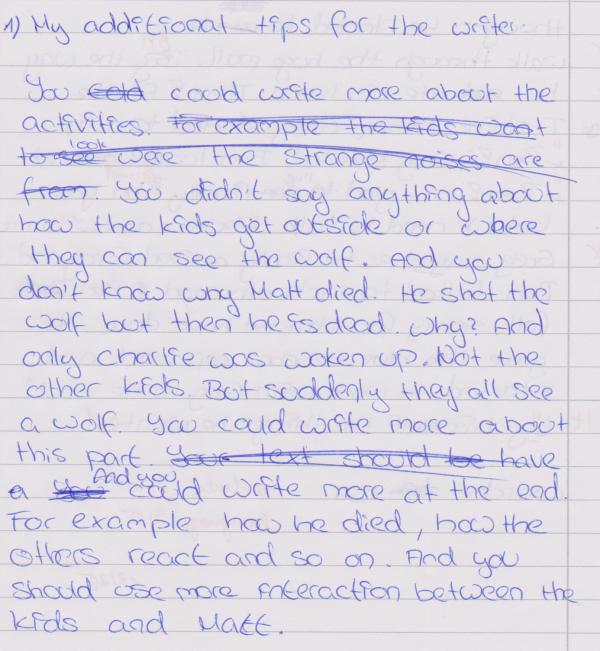 1) My additional tips for the writer.
You cold could write more about the
activities. For example the kids want
to see look were the strange noises are
from. You didn't say anything about
how the kids get outside or where
they can see the wolf. And you
don't know why Matt died. He shot the
wolf but then he is dead. Why? And
only Charlie was woken up. Not the
other kids. But suddenly they all see
a wolf. You could write more about
this part. Your text should be have
a And you could write more at the end.
For example how he died, how the
others react and so on. And you
should use more interaction between the
kids and Matt.